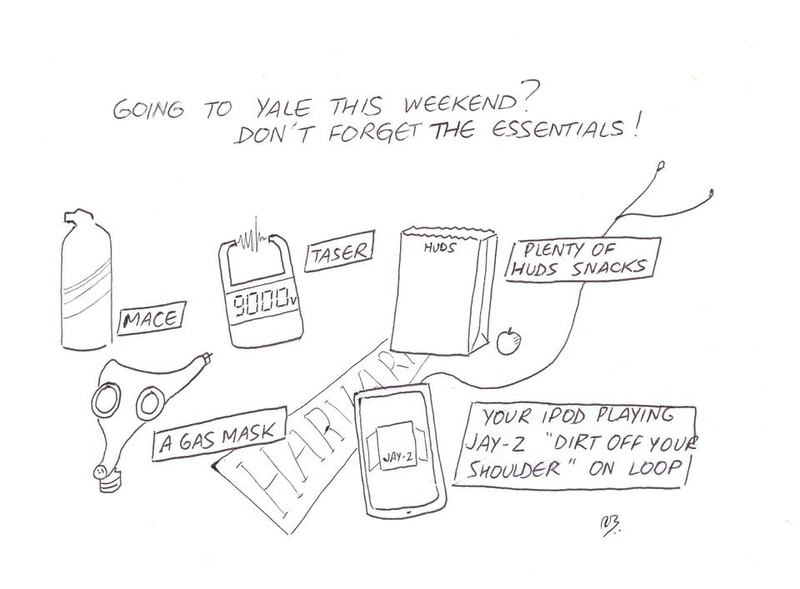 GOING TO YALE THIS WEEKEND?
DON'T FORGET THE ESSENTIALS!
MACE
9000V
TASER
HUDS
PLENTY OF
HUDS SNACKS
A GAS MASK
HARVARD
JAY-Z
YOUR IPOD PLAYING
JAY-Z "DIRT OFF YOUR
SHOULDER" ON LOOP